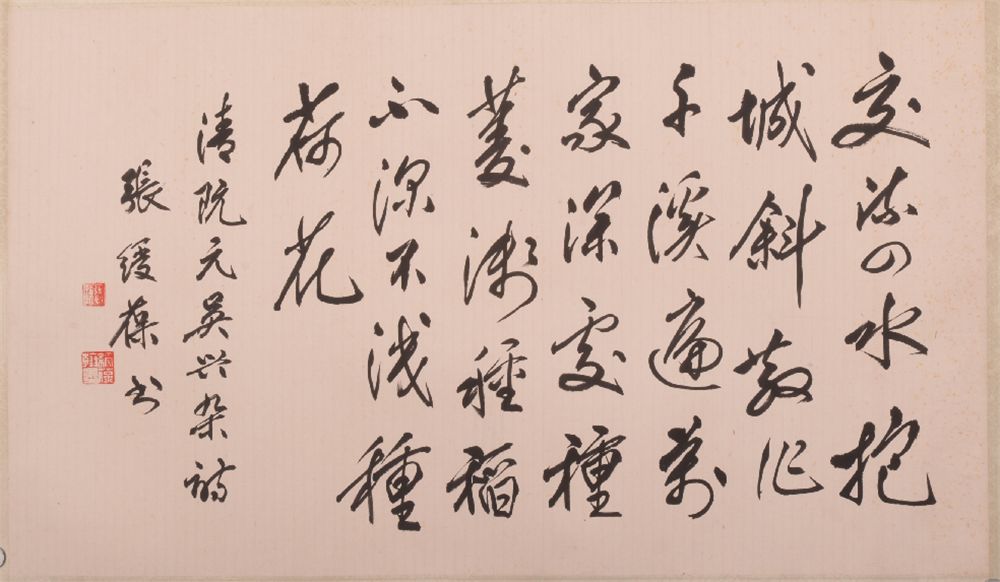 交流四水抱
城斜散作
千溪遍萬
家深處種
菱淺種稻
不深不淺種
荷花
清阮元吳兴杂詩
張綬葆书